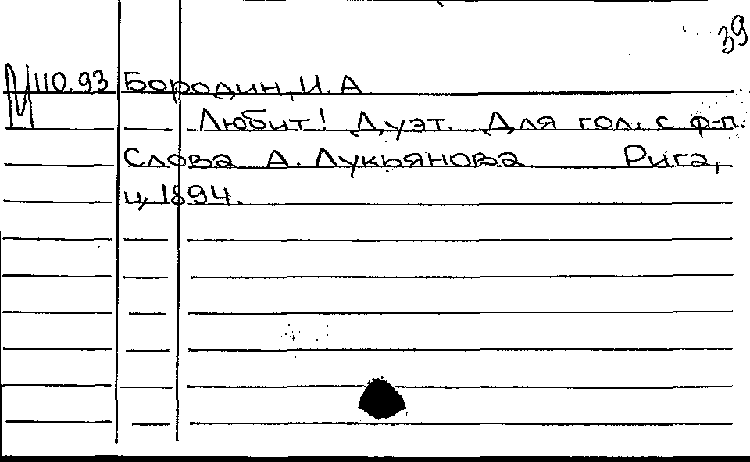 39
М 110.93 Бородин, И. А
Любит! Дуэт. Для гол. с ф-п.
Слова А. Лукьянова Рига,
ц, 1894.